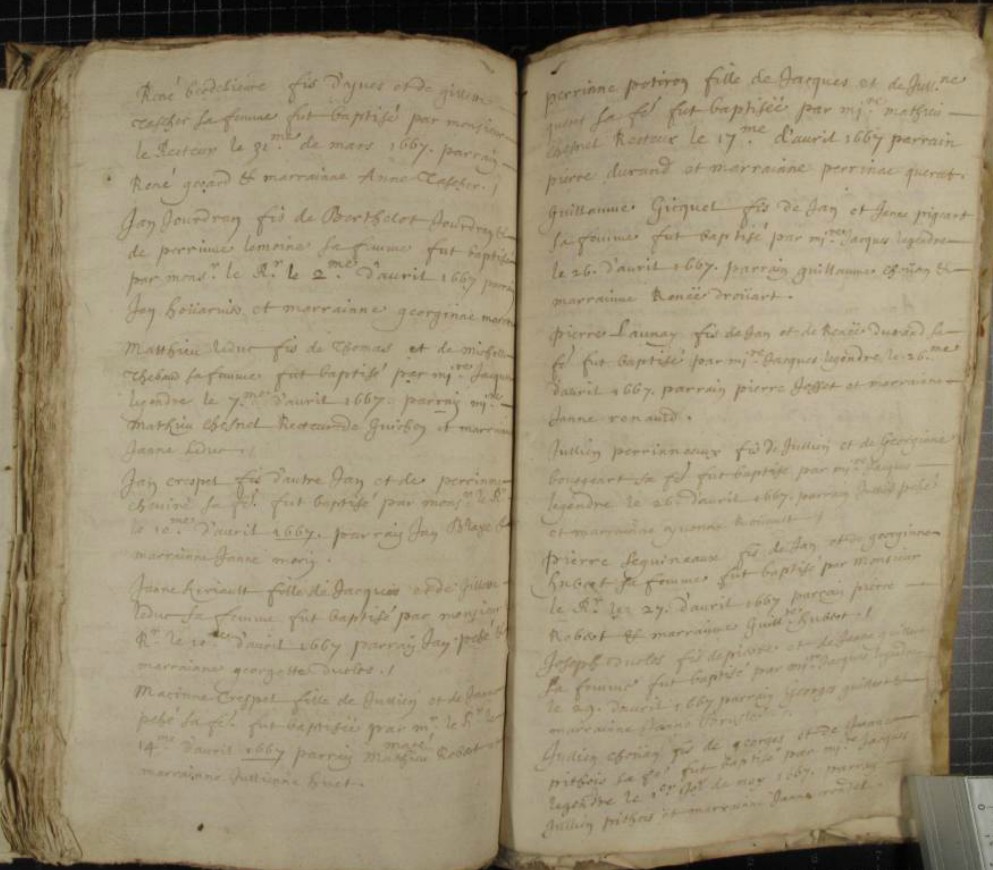 René fis d'yues et de gillette
Tascher sa femme fut baptisé par monsieur
le Recteur le 31.me de mars 1667. parrain
René gerard & marrainne Anne Tascher. /
Jan Jourdran fis de Berthelot Jourdran &
de perrinne lemoine sa femme fut baptisé
par mons.r le R.r le 2.me d'auril 1667
Jan hoüarin et marrainne georginne
Matthieu leduc fis de Thomas et de michelle
Thebaud sa femme fut baptisé par mi.re Jacques
legendre le 7.me d'auril 1667. parrain mi.re
Mathieu Chesnel Recteur de Guichen et marrain
Janne leduc
Jan crespel fis d'autre Jan et de perrinne
sa fe. fut baptisé par mons.r le R.r
le 10.me d'auril 1667. parrain Jan Blaye &
marrainne Janne
Janne fille de Jacques et de gillette
leduc sa femme fut baptisé par monsieur
R.r le 10.me d'auril 1667 parrain Jan pehé &
marrainne georgette duclos. /
crespel fille de Jullien et de Janne
pehé sa fe. fut baptisée par m.r le R.r le
14.me d'auril 1667 parrain Mathieu Robert et
marrainne Jullienne huet.
perrinne potiron fille de Jacques et de Jull.ne
sa fe. fut baptisée par mi.re mathieu
chesnel Recteur le 17.me d'auril 1667 parrain
pierre durand et marrainne perrinne querat.
Guillaume Gicquel fis de Jan et Janne
sa femme fut baptisé par mi.re Jacques legendre
le 26. d'auril 1667. parrain guillaume choüan &
marrainne Renée droüart.
pierre Launay fis de Jan et de Renée durand sa
fe. fut baptisé par mi.re Jacques legendre le 26.me
d'auril 1667. parrain pierre Josset et marrainne
Janne renauld.
Jullien fis de Jullien et de Georginne
sa fe. fut baptisé par mi.re Jacques
legendre le 26. d'auril 1667. parrain pehé
et marrainne yuonne
pierre sequineaux fis de Jan et de georginne
hubert sa femme fut baptisé par monsieur
le R.r le 27. d'auril 1667 parrain pierre
Robert & marrainne Guill.tte hubert. /
Joseph duclos fis de pierre et de Janne
sa femme fut baptisé par mi.re Jacques legendre
le 29. d'auril 1667 parrain Georges &
marrainne
Jullien choüan fis de georges et de
pithois sa fe. fut baptisé par mi.re Jacques
legendre le 1.er Jo.r de may 1667. parrain
Jullien pithois et marrainne Janne